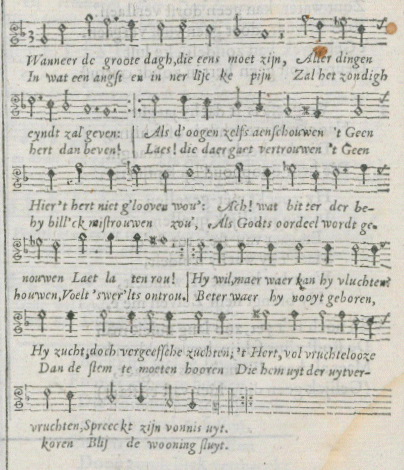 Wanneer de groote dagh, die eens moet zijn, Aller dingen
In wat een angst en in ner lijc ke pijn Zal het zondigh
eyndt zal geven: Als d'oogen zelfs aenschouwen 't Geen
hert dan beven! Laes! die daer gart vertrouwen 't Geen
Hier 't hert niet g'looven wou': Ach! wat bitter der be-
hy bill'ck mistrouwen zou', Als Godts oordeel wordt ge-
nouwen Laet la ten rou! Hy wil, maer waer kan hy vluchten?
houwen, Voelt 'swer'lts ontrou. Beter waer hy nooyt geboren,
Hy zucht; doch vergeefsche zuchten; 't Hert, vol vruchtelooze
Dan de stem te moeten hooren Die hem uyt der uytver-
vruchten, Spreeckt zijn vonnis uyt.
koren Blij de wooning sluyt.